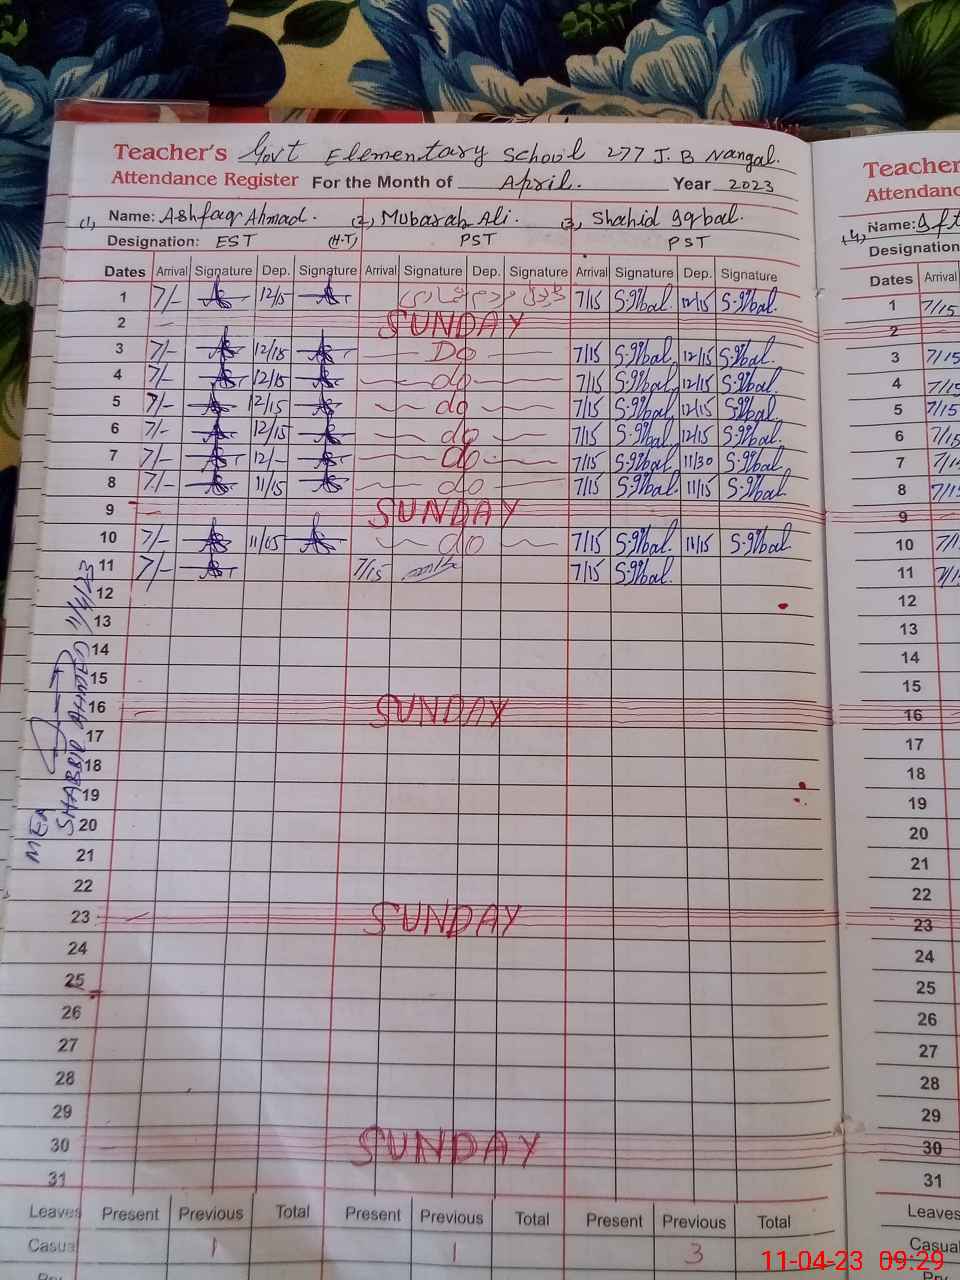 Teacher's Govt Elementary School 277 J.B Nangal.
Attendance Register For the Month of April. Year 2023
(1) Name: Ashfaq Ahmad. (2) Mubarak Ali. (3) Shahid Iqbal.
Designation: EST (H.T) PST PST
Dates Arrival Signature Dep. Signature Arrival Signature Dep. Signature Arrival Signature Dep. Signature
1 7/- 12/15 7/15 S.Iqbal 12/15 S.Iqbal
2 SUNDAY
3 7/- 12/15 Do 7/15 S.Iqbal 12/15 S.Iqbal
4 7/- 12/15 do 7/15 S.Iqbal 12/15 S.Iqbal
5 7/- 12/15 do 7/15 S.Iqbal 12/15 S.Iqbal
6 7/- 12/15 do 7/15 S.Iqbal 12/15 S.Iqbal
7 7/- 12/- do 7/15 S.Iqbal 11/30 S.Iqbal
8 7/- 11/15 do 7/15 S.Iqbal 11/15 S.Iqbal
9 SUNDAY
10 7/- 11/05 do 7/15 S.Iqbal 11/15 S.Iqbal
11 7/- 7/15 7/15 S.Iqbal
12
13
14
15
16 SUNDAY
17
18
19
20
21
22
23 SUNDAY
24
25
26
27
28
29
30 SUNDAY
31
Leaves Present Previous Total Present Previous Total Present Previous Total
Casual 1 1 3
MEA
SHABBIR AHMAD 11/4/23
Teacher
Attendanc
(4) Name:
Designation
Dates Arrival
1 7/15
2
3 7/15
4 7/15
5 7/15
6 7/15
7
8 7/15
9
10
11
12
13
14
15
16
17
18
19
20
21
22
23
24
25
26
27
28
29
30
31
Leaves
Casual
11-04-23 09:29